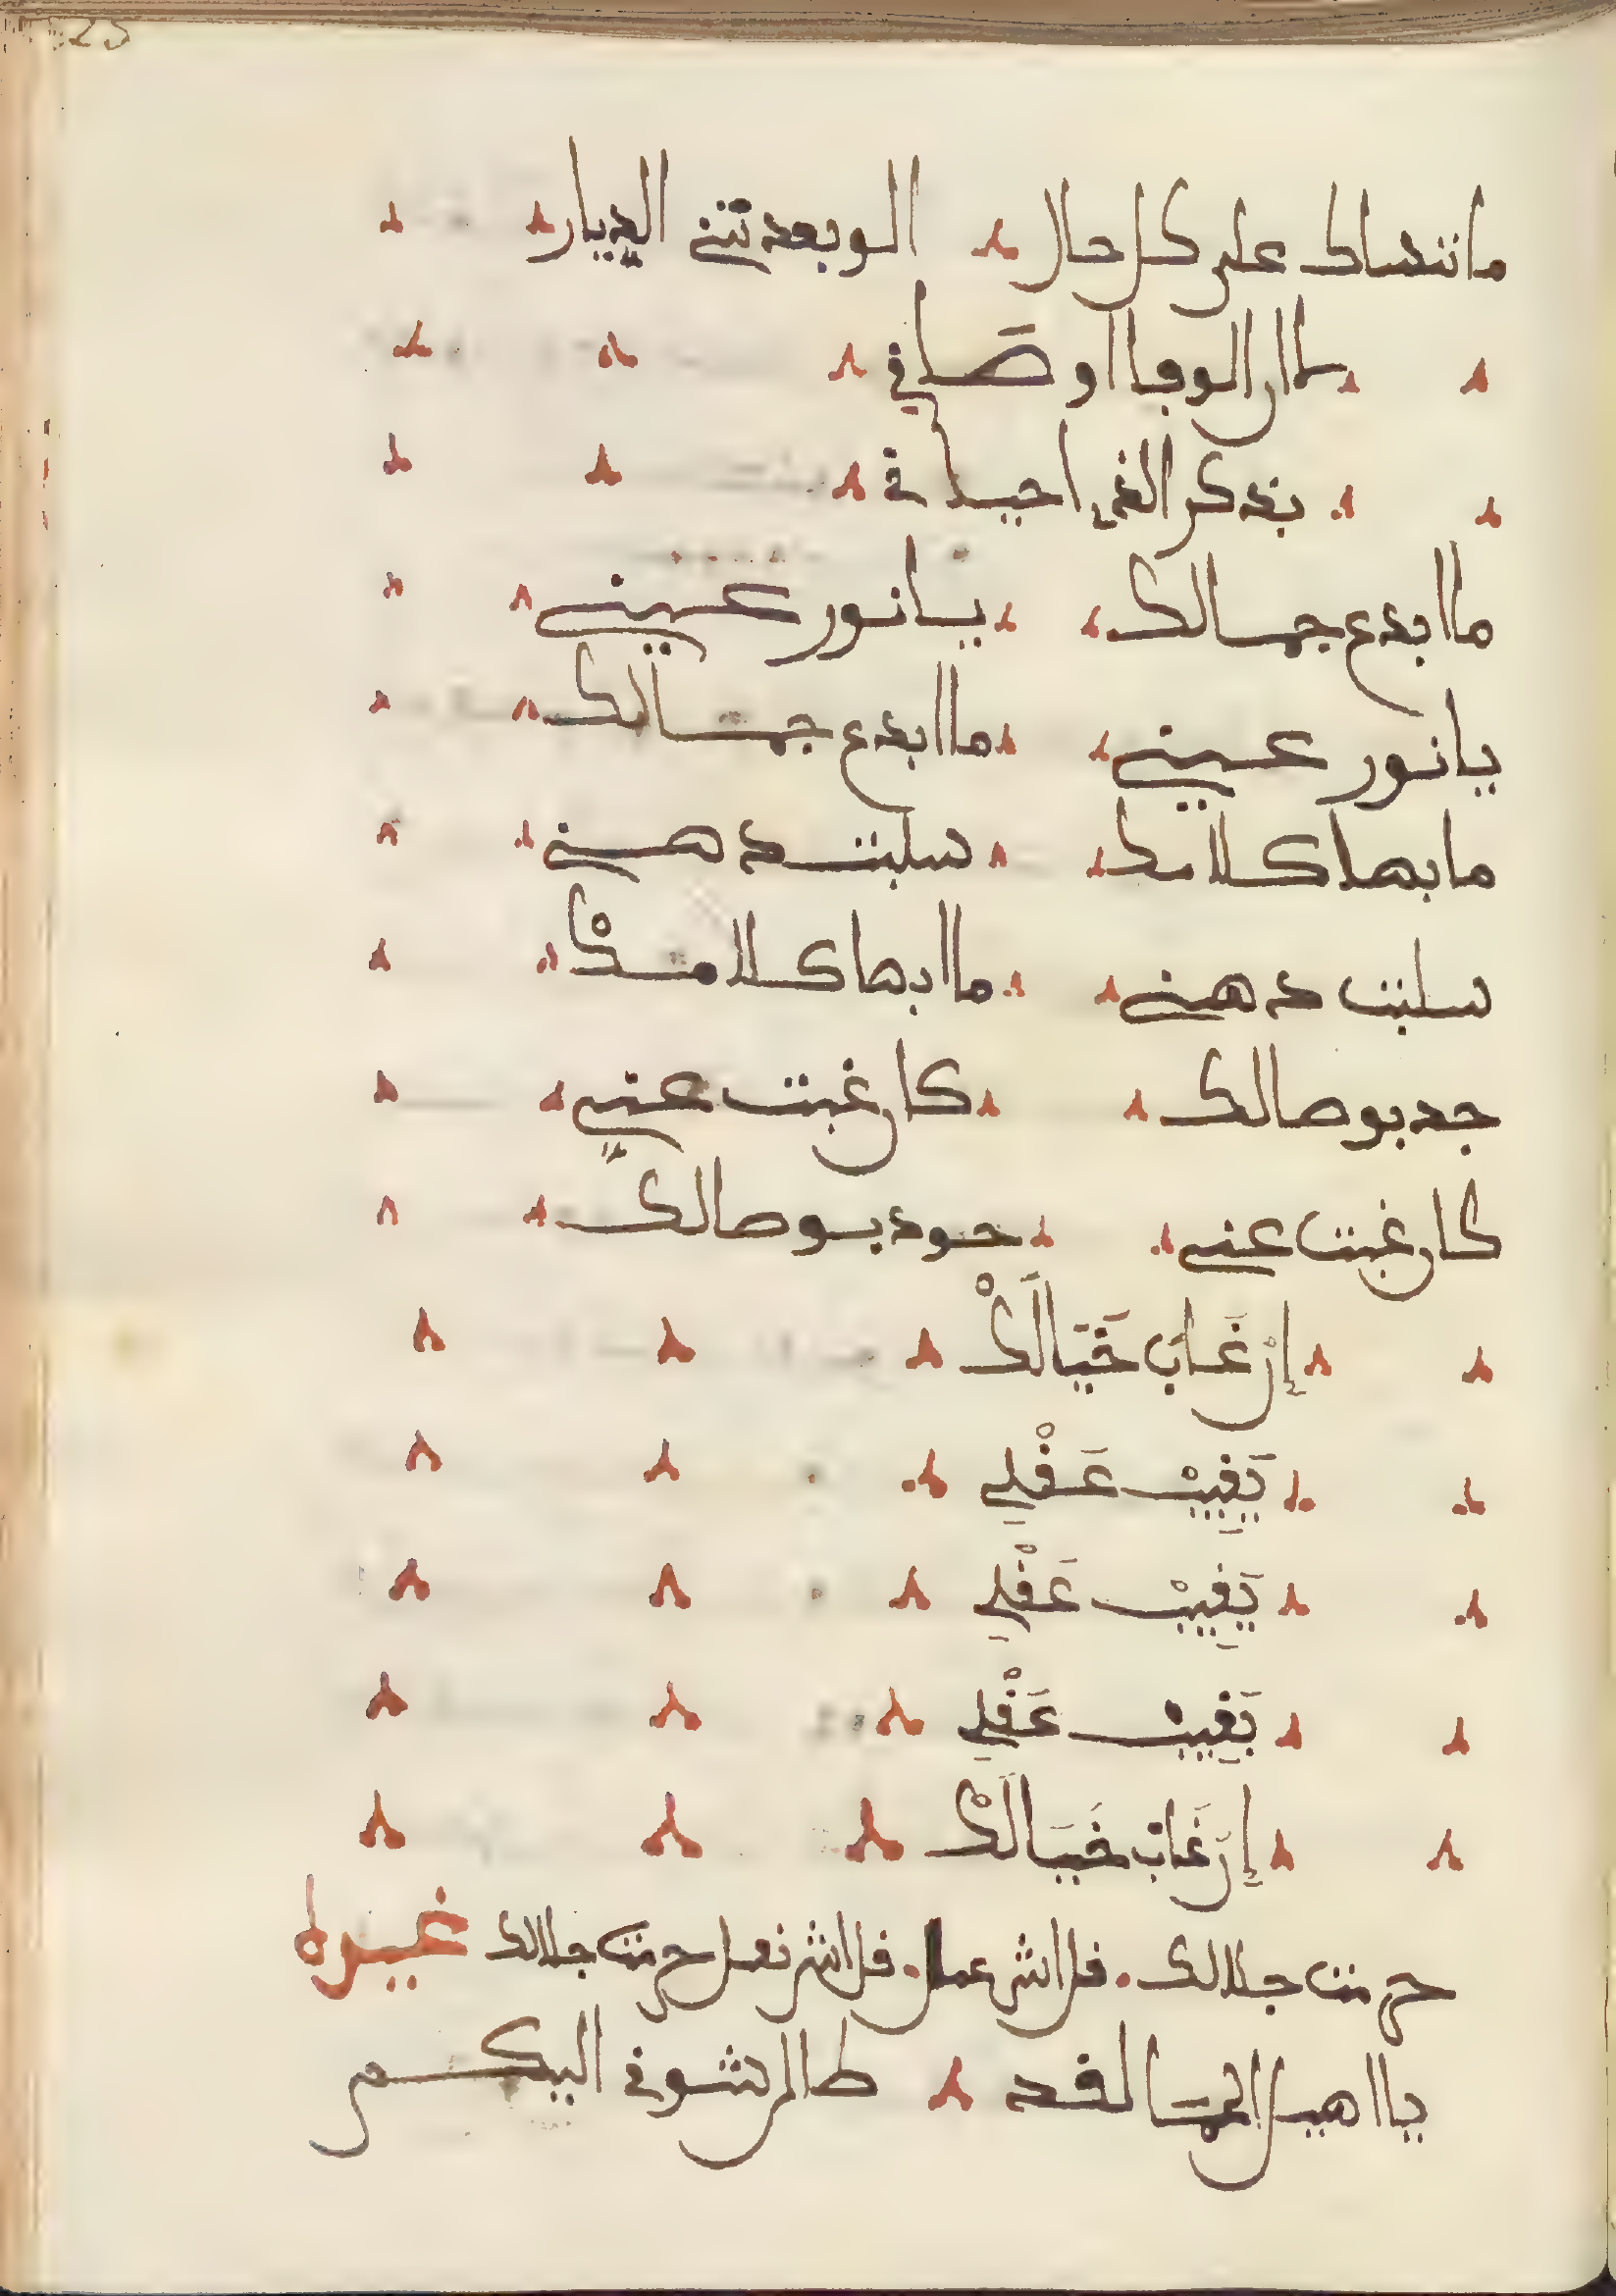 ما ننساك على كل حال الو بعدتني الديار
كان الوفا اوصافي
نذكر الغير احيافي
ما ابدع جمالك يا نور عيني
يا نور عيني ما ابدع جمالك
ما بها كلامك سلبت ذهني
سلبت ذهني ما ابها كلامك
جد بوصالك كان غبت عني
كان غبت عني جود بوصالك
إن غاب خيالك
يغيب عقلي
يغيب عقلي
يغيب عقلي
إن غاب خيالك
حرمت جلالك فل اش عمل فل اش نعمل حرمت جلالك غيره
يا اهيل الجمال لقد طال شوقي اليكم